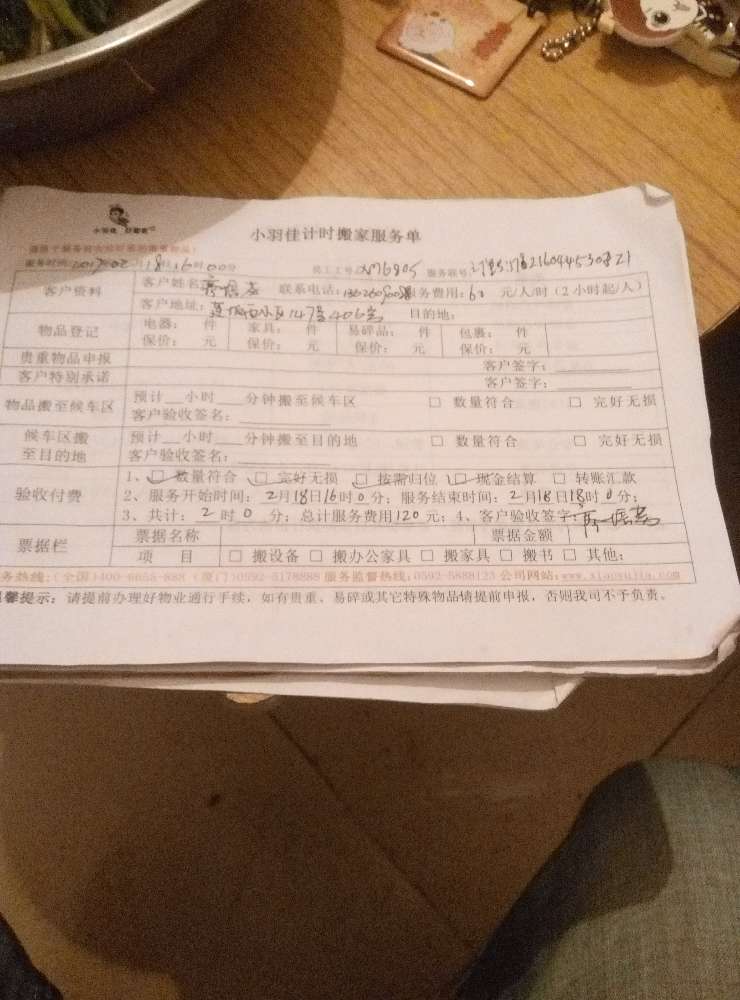 小羽佳计时搬家服务单
服务时间:2017 02月18日16时00分 员工工号:XM6905 服务联号 216044530821
客户资料 客户姓名: 联系电话: 服务费用:60 元/人/时(2小时起/人)
客户地址: 147号406室 目的地:
物品登记 电器: 件 家具: 件 易碎品: 件 包裹: 件
保价: 元 保价: 元 保价: 元 保价: 元
贵重物品申报 客户签字:
客户特别承诺 客户签字:
物品搬至候车区 预计__小时__分钟搬至候车区 □ 数量符合 □ 完好无损
客户验收签名:
候车区搬 预计__小时__分钟搬至目的地 □ 数量符合 □ 完好无损
至目的地 客户验收签名:
验收付费 1、□ 数量符合 □ 完好无损 □ 按需归位 □ 现金结算 □ 转账汇款
2、服务开始时间: 2月18日16时0分; 服务结束时间: 2月18日18时0分;
3、共计: 2时0分; 总计服务费用120元; 4、客户验收签字:
票据栏 票据名称 票据金额
项 目 □ 搬设备 □ 搬办公家具 □ 搬家具 □ 搬书 □ 其他:
务热线:(全国)400-6658-888 (厦门)0592-5178888 服务监督热线:0592-5888123 公司网站:www.xiaoyujia.com
馨提示: 请提前办理好物业通行手续,如有贵重、易碎或其它特殊物品请提前申报,否则我司不予负责。